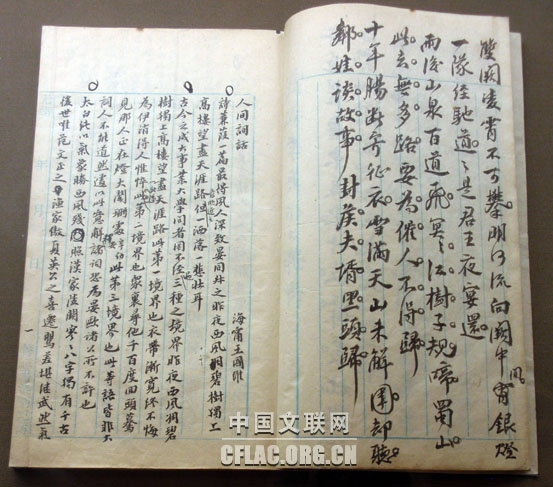 雙闕凌霄不可攀明河流向闕中間銀燈
一隊經馳道道是君王夜宴還
雨後山泉百道飛冥冥江樹子規啼蜀山
此去無多路要為催人不得歸
十年腸斷寄征衣雪滿天山未解圍却聽
鄰娃談故事封侯夫壻黑頭歸
人間詞話
海甯王國維
詩蒹葭一篇最得風人深致晏同叔之昨夜西風凋碧樹獨上
高樓望盡天涯路但一洒落一悲壯耳
古今之成大事業大學問者罔不經過三種之境界昨夜西風凋碧
樹獨上高樓望盡天涯路此第一境界也衣帶漸寬終不悔
為伊消得人憔悴此第二境界也衆裏尋他千百度回頭驀
見那人正在燈火闌珊處此第三境界也此等語皆非大
詞人不能道然遽以此意解諸詞恐為晏歐諸公所不許也
太白純以氣象勝西風殘照漢家陵闕寥寥八字獨有千古
後世唯范文正之漁家傲夏英公之喜遷鶯差堪繼武然氣
一
中国文联网
CFLAC.ORG.CN